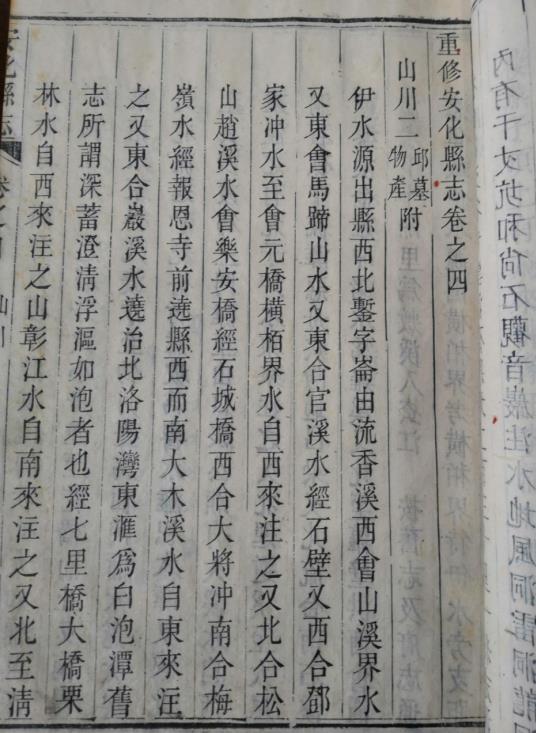 重修安化縣志卷之四
山川二邱墓物產附
伊水源出縣西北鏨字崙由流香溪西會山溪界水
又東會馬蹄山水又東合官溪水經石壁又西合鄧
家冲水至會元橋橫栢界水自西來注之又北合松
山趙溪水會樂安橋經石城橋西合大將冲南合梅
嶺水經報恩寺前遶縣西而南大木溪水自東來注
之又東合巖溪水遶治北洛陽灣東滙爲白泡潭舊
志所謂深蓄澄淸浮漚如泡者也經七里橋大橋栗
林水自西來注之山彰江水自南來注之又北至淸
安化縣志
卷之四
山川